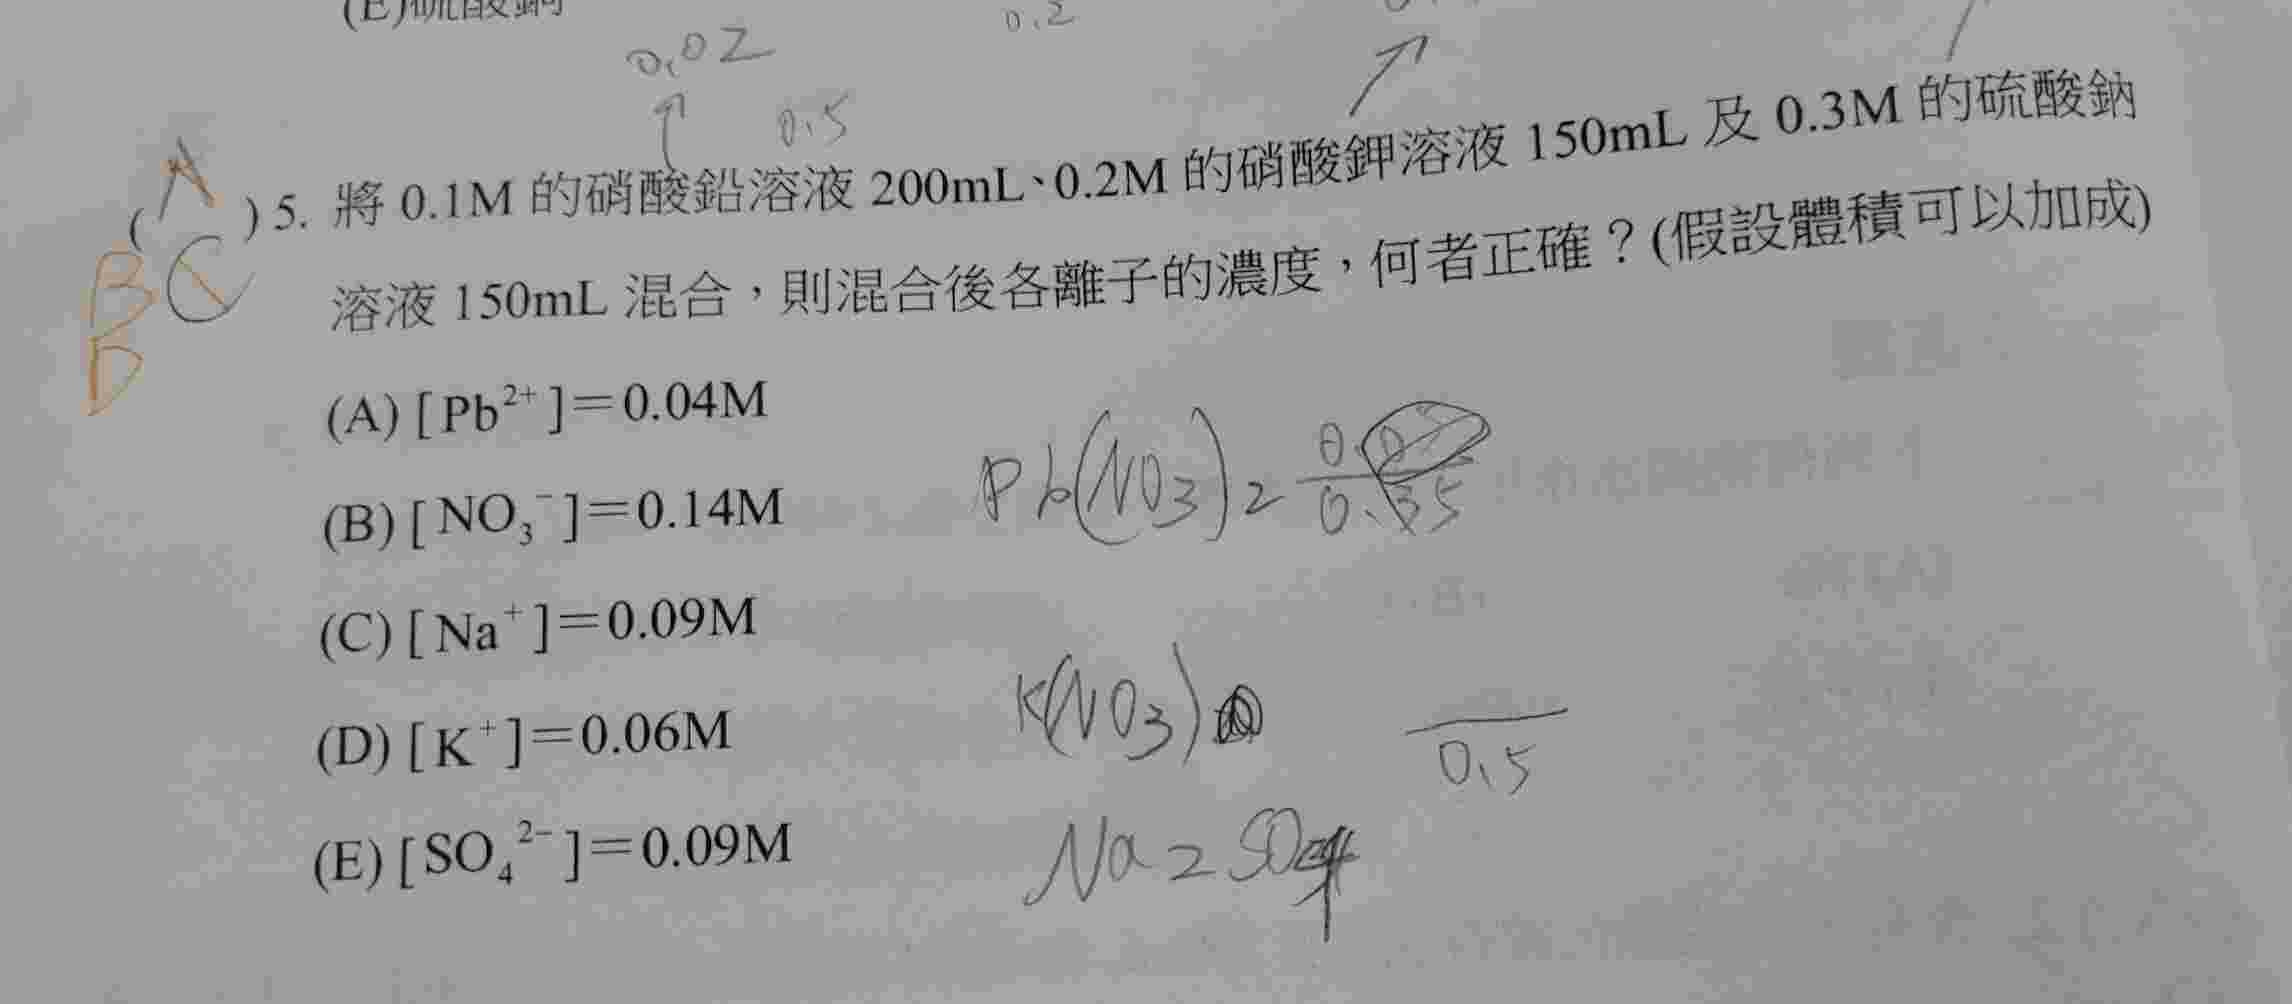 (E)硫酸銅
0.02
0.2
0.5
(A)5. 將 0.1M 的硝酸鉛溶液 200mL、0.2M 的硝酸鉀溶液 150mL 及 0.3M 的硫酸鈉
B C
D
溶液 150mL 混合,則混合後各離子的濃度,何者正確?(假設體積可以加成)
(A)[Pb²⁺]=0.04M
(B)[NO₃⁻]=0.14M
(C)[Na⁺]=0.09M
(D)[K⁺]=0.06M
(E)[SO₄²⁻]=0.09M
Pb(NO3)2
K(NO3)
0.5
Na2SO4